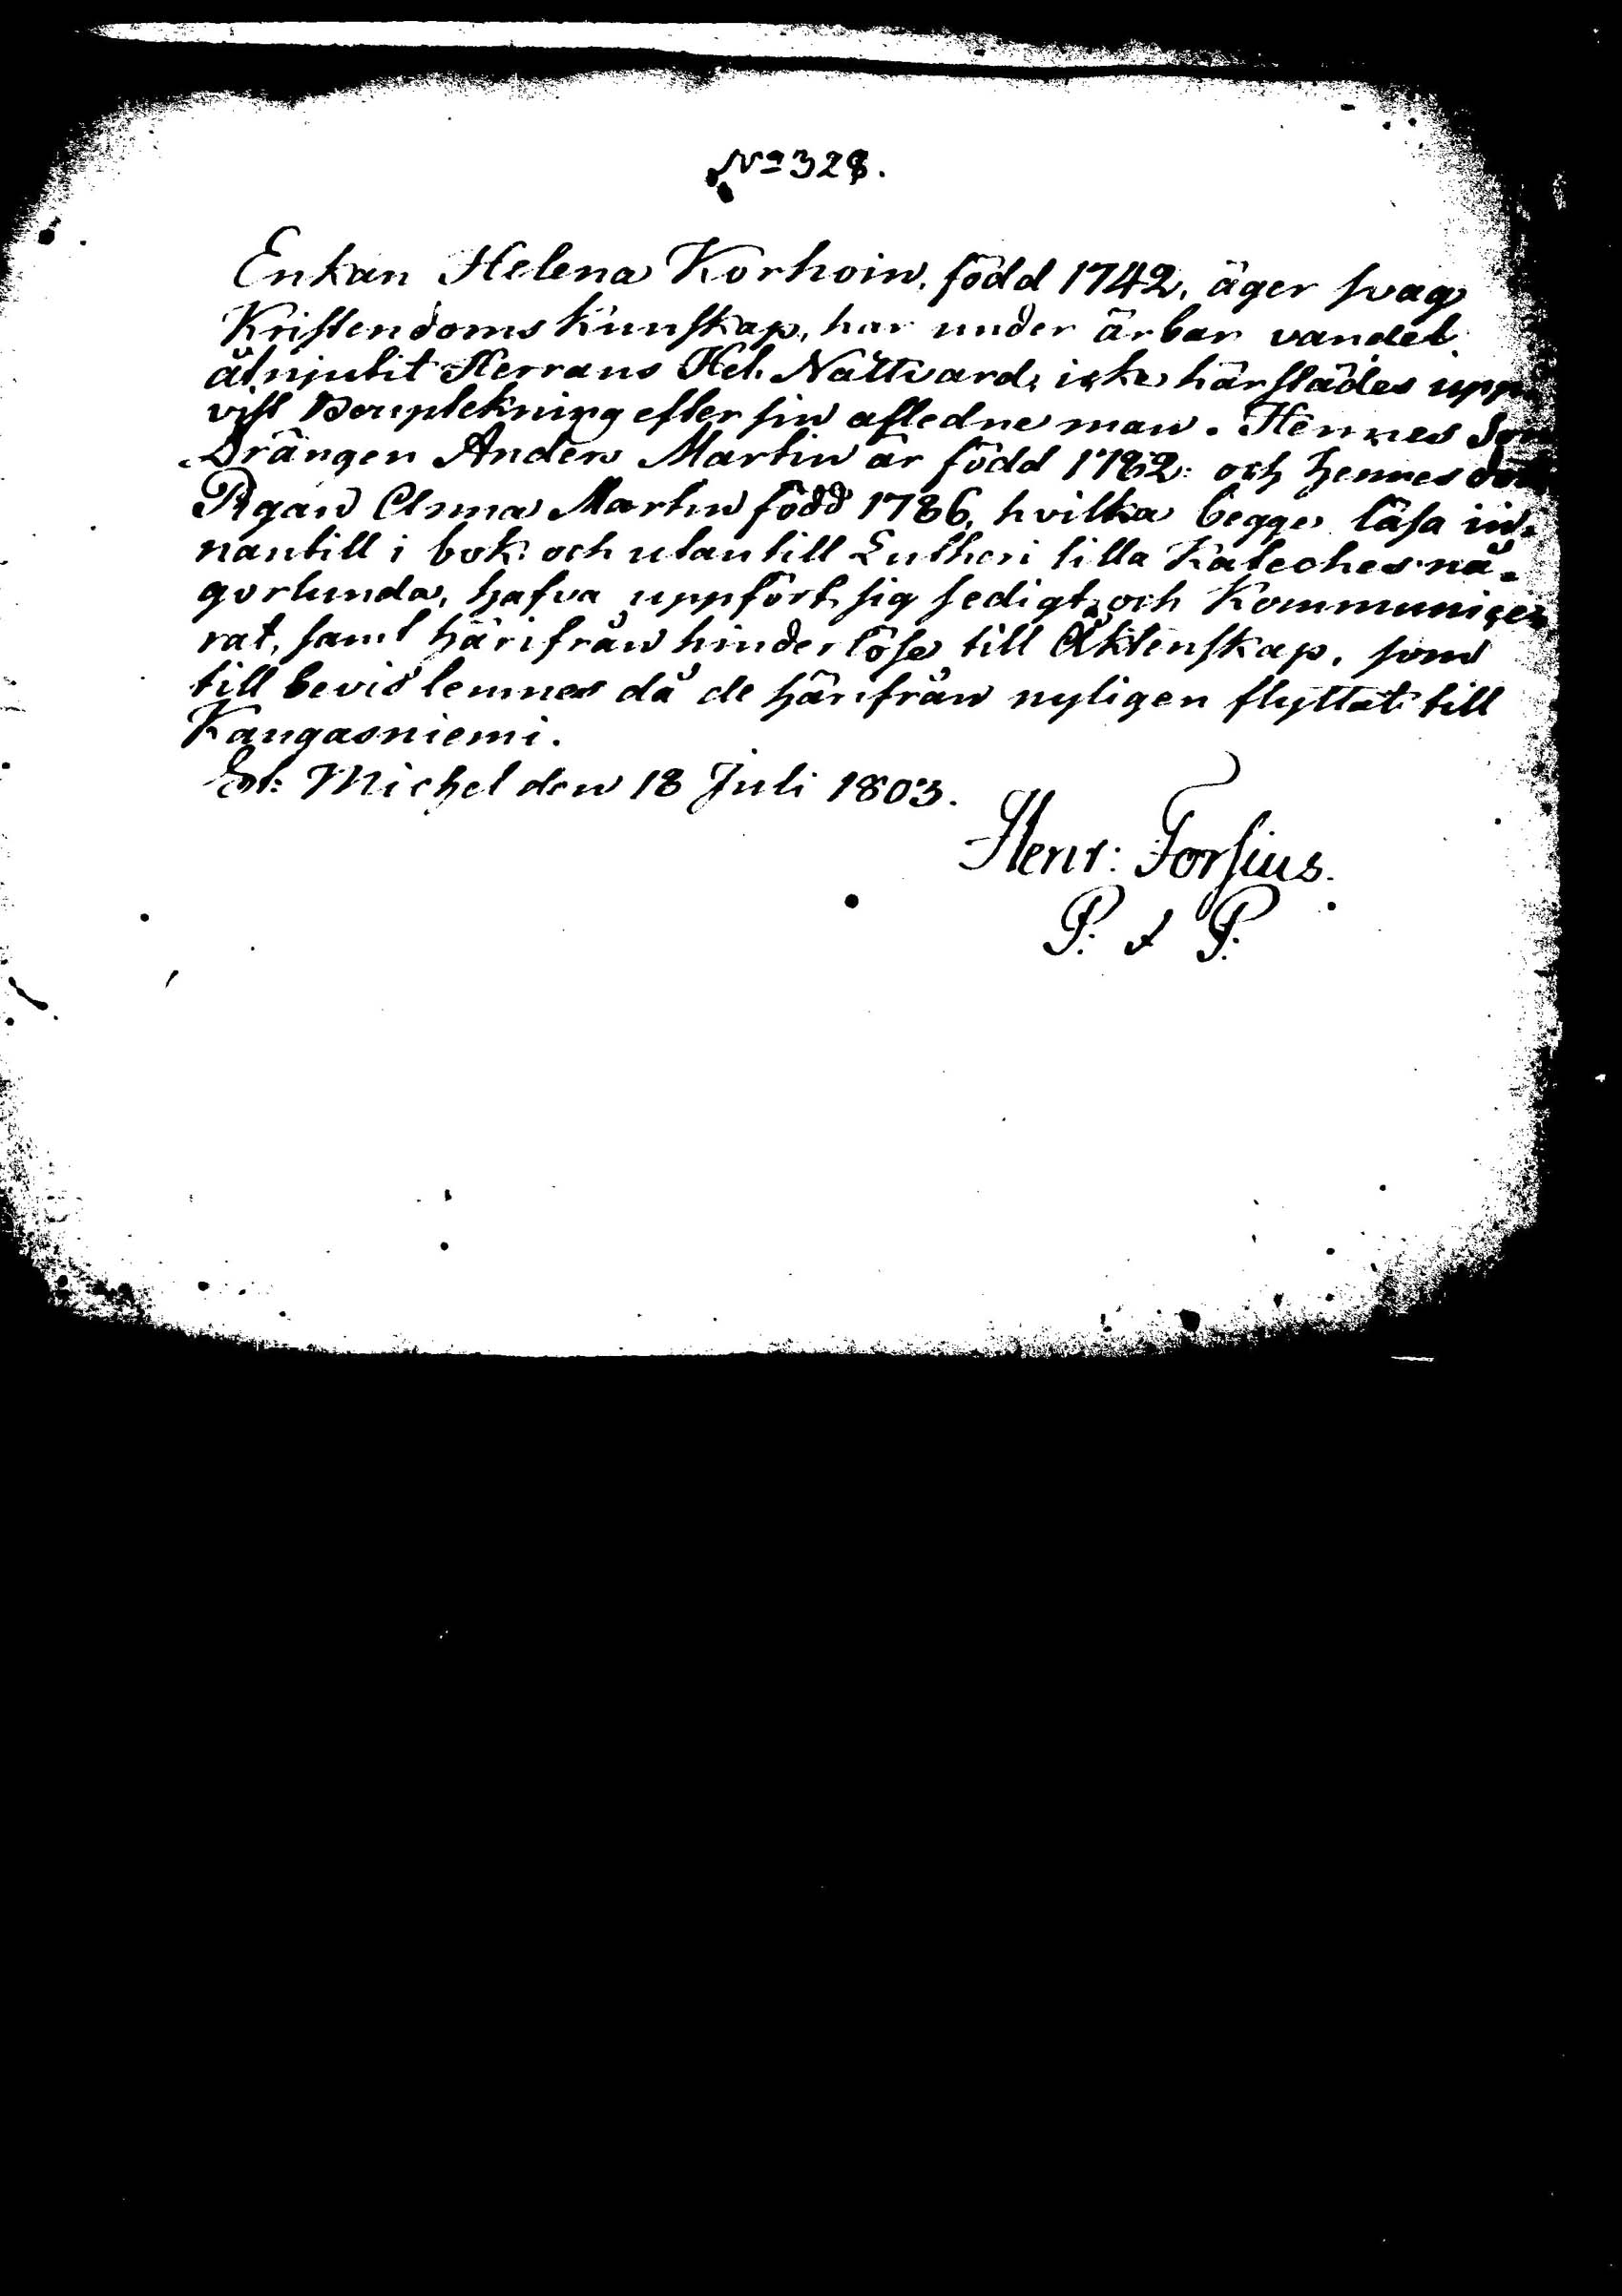 No 328.
Enkan Helena Korhoin, född 1742, äger svag
Kristendoms kunskap, har under ärbar vandel
åtnjutit Herrans Hel. Nattvard, icke härstädes upp
vist Bouptekning efter sin afledne man. Hennes Son
Drängen Anders Martin är född 1782: och hennes
Pigan Anna Martin född 1786, hvilka begge läsa in-
nantill i bok och utantill Lutheri lilla Kateches nå-
gorlunda, hafva uppfört sig sedigt och Kommunice
rat, samt härifrån hinderlöse till Äktenskap, som
till bevis lemnas då de härifrån nyligen flyttat till
Kangasniemi.
St: Michel den 18 Juli 1803.
Henr: Forsius.
P. & P.